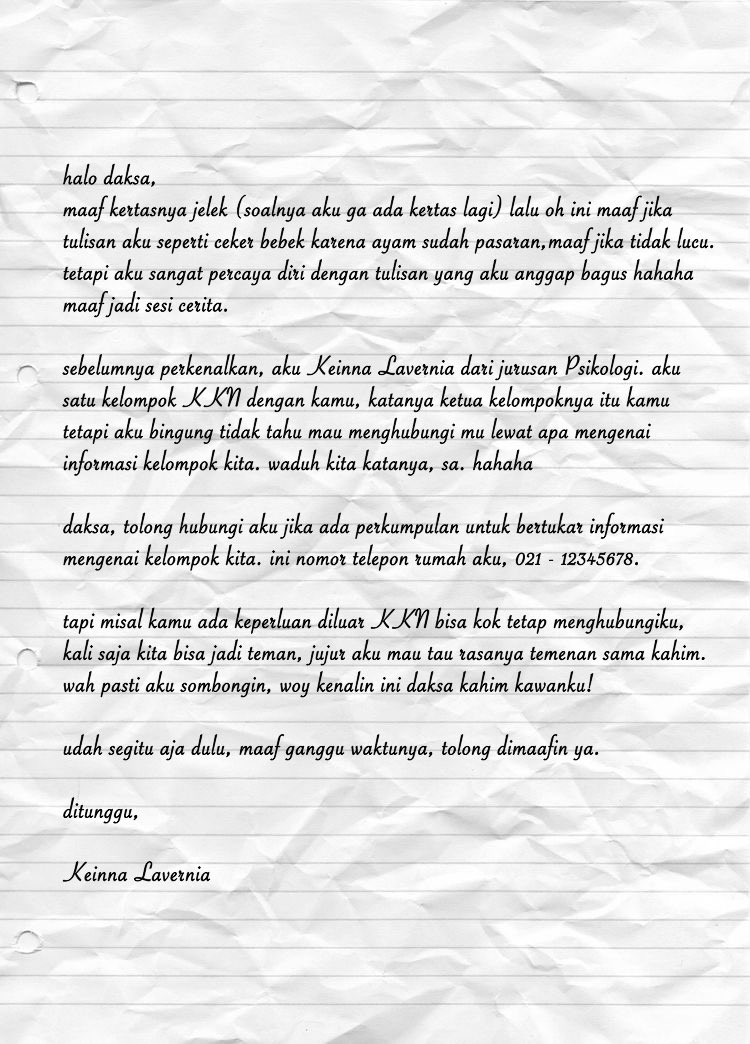 halo daksa,
maaf kertasnya jelek (soalnya aku ga ada kertas lagi) lalu oh ini maaf jika
tulisan aku seperti ceker bebek karena ayam sudah pasaran,maaf jika tidak lucu.
tetapi aku sangat percaya diri dengan tulisan yang aku anggap bagus hahaha
maaf jadi sesi cerita.
sebelumnya perkenalkan, aku Keinna Lavernia dari jurusan Psikologi. aku
satu kelompok KKN dengan kamu, katanya ketua kelompoknya itu kamu
tetapi aku bingung tidak tahu mau menghubungi mu lewat apa mengenai
informasi kelompok kita. waduh kita katanya, sa. hahaha
daksa, tolong hubungi aku jika ada perkumpulan untuk bertukar informasi
mengenai kelompok kita. ini nomor telepon rumah aku, 021 - 12345678.
tapi misal kamu ada keperluan diluar KKN bisa kok tetap menghubungiku,
kali saja kita bisa jadi teman, jujur aku mau tau rasanya temenan sama kahim.
wah pasti aku sombongin, woy kenalin ini daksa kahim kawanku!
udah segitu aja dulu, maaf ganggu waktunya, tolong dimaafin ya.
ditunggu,
Keinna Lavernia